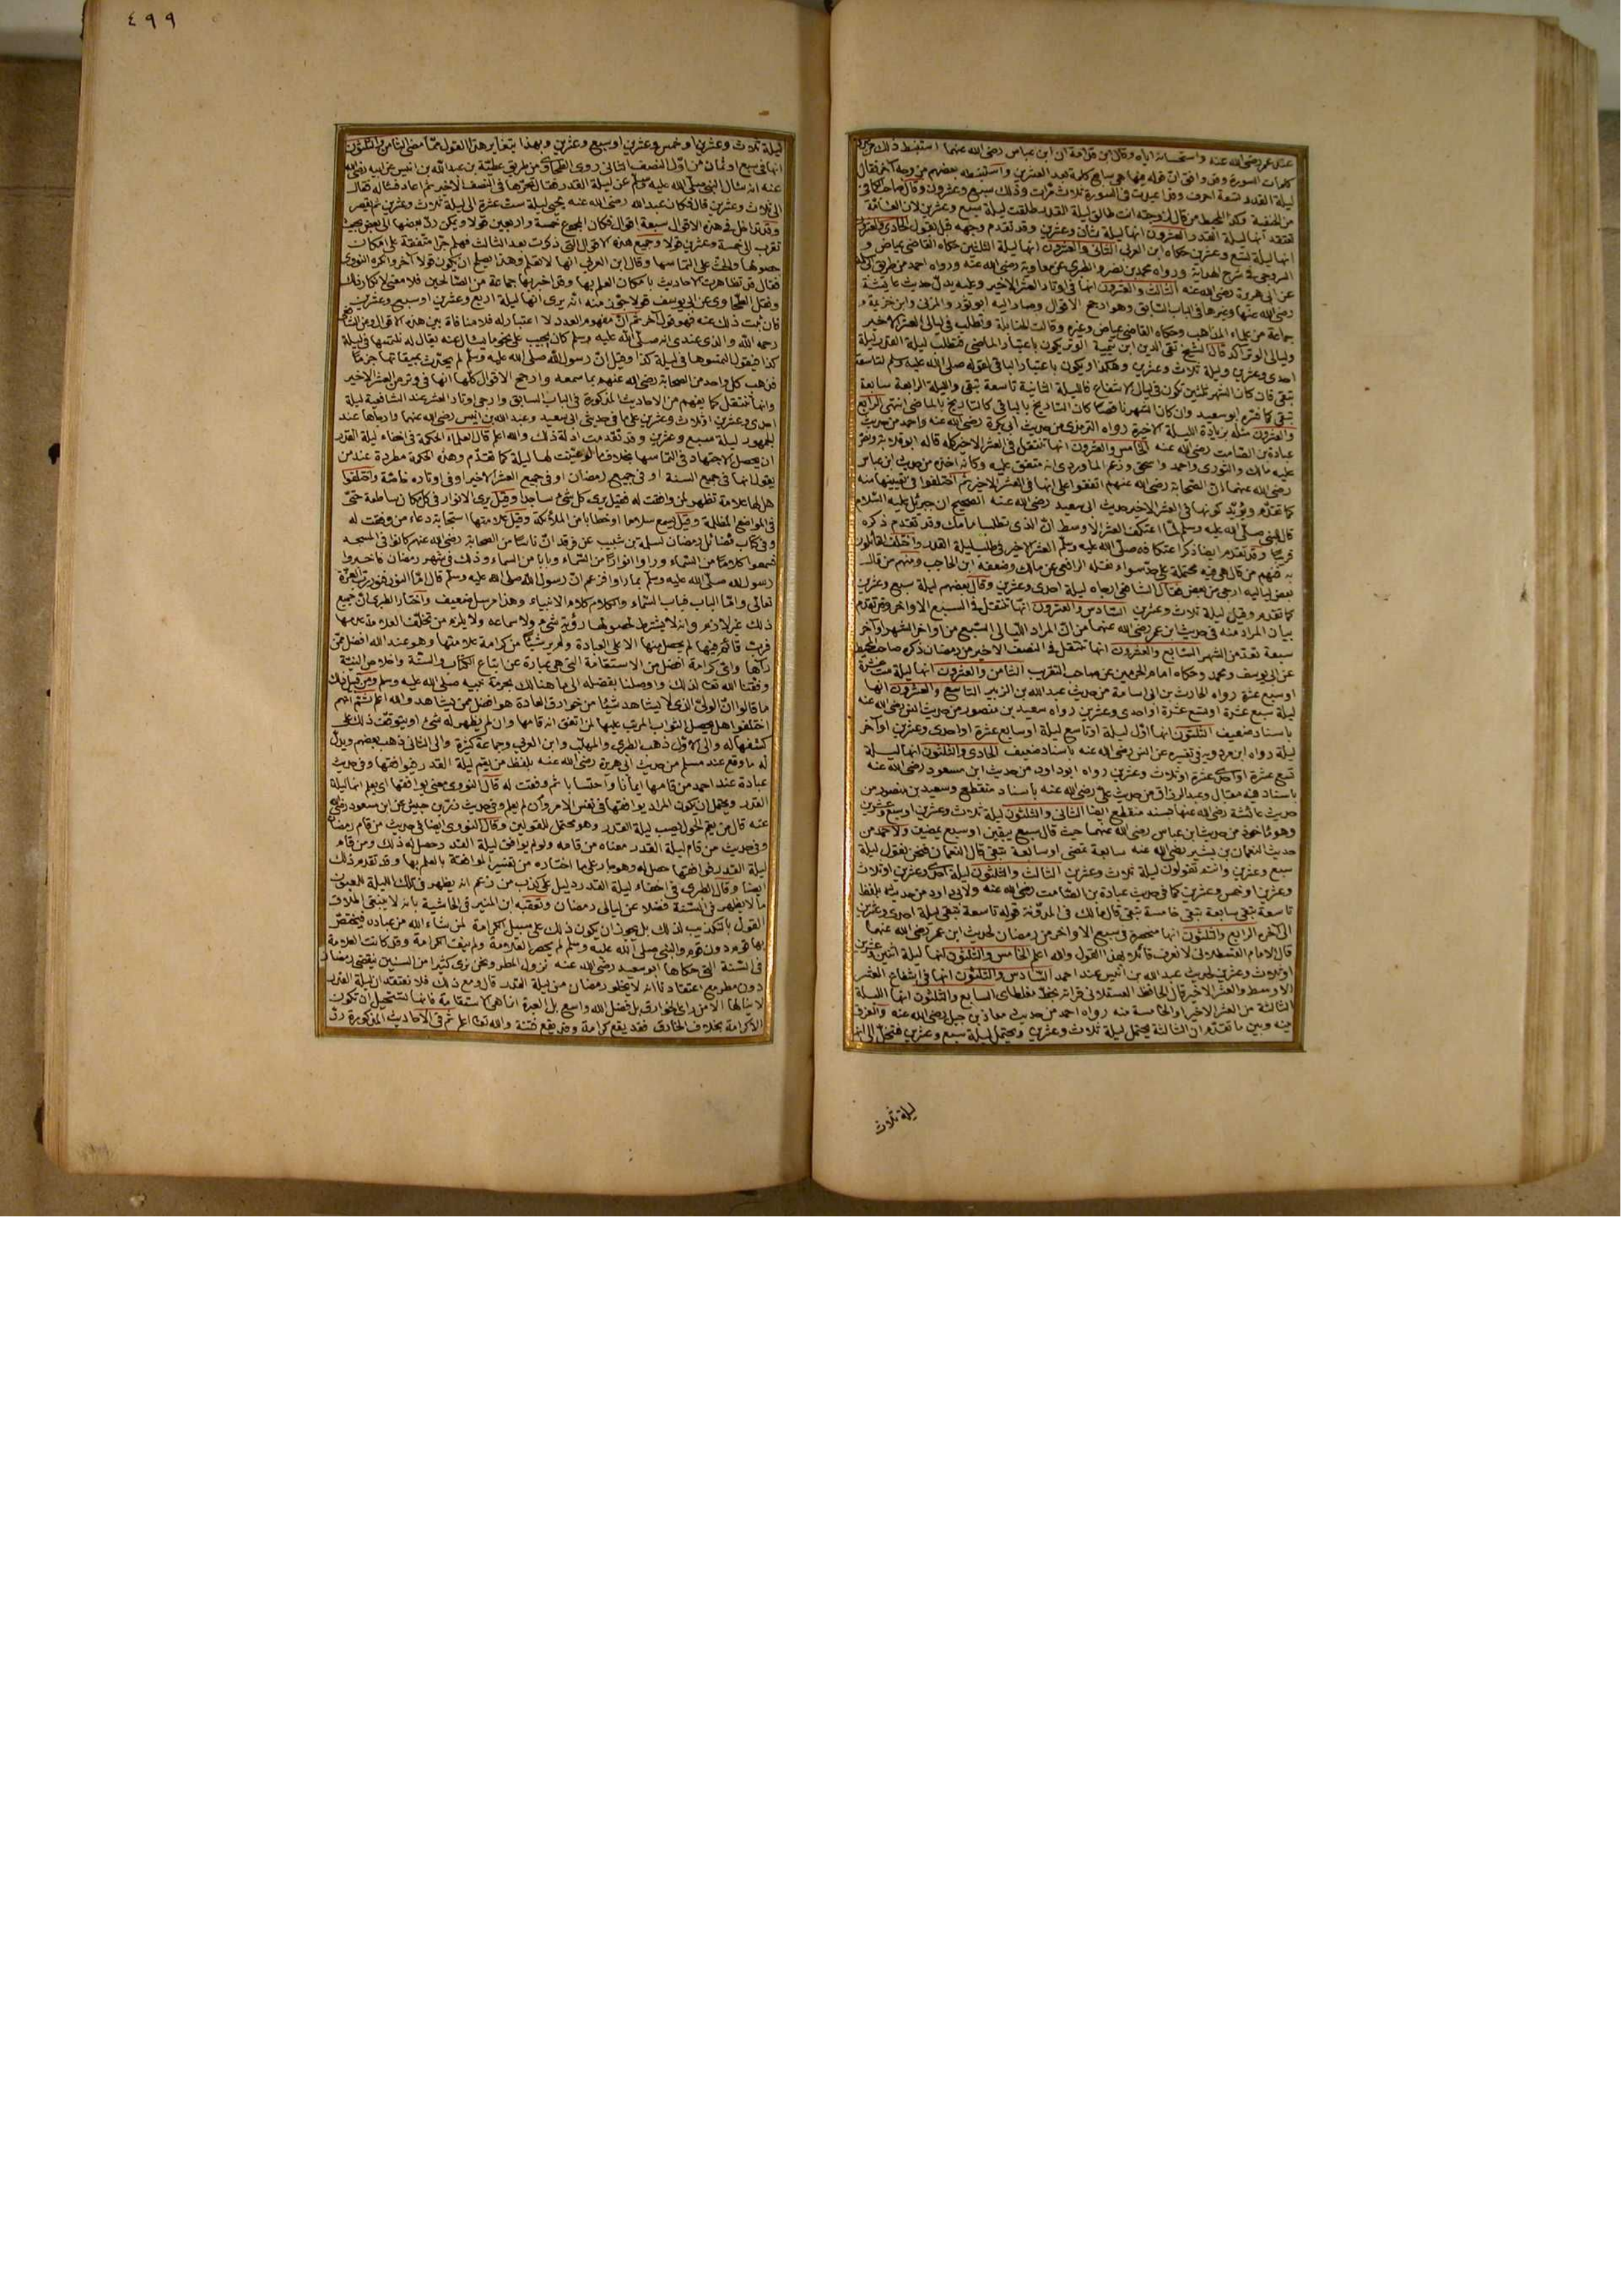 عند عمر رضي الله عنه واستحسانه اياه وقال ابن قدامة ان ابن عباس رضي الله عنهما استنبط ذلك من عدد
كلمات السورة وقد وافق ان قوله فيها هي سابع كلمة بعد العشرين واستنبطه بعضهم من وجه آخر فقال
ليلة القدر تسعة احرف وقد اعيدت في السورة ثلاث مرات وذلك سبع وعشرون وقال صاحب الكافي
من الحنفية وكذا المحيط من قال لزوجته انت طالق ليلة القدر طلقت ليلة سبع وعشرين لان العامة
تعتقد انها ليلة القدر العشرون انها ليلة ثمان وعشرين وقد تقدم وجهه قبل بقول الحادي والعشرون
انها ليلة تسع وعشرين حكاه ابن العربي الثاني والعشرون انها ليلة الثلثين حكاه القاضي عياض و
السروجي في شرح الهداية ورواه محمد بن نصر والطبري عن معاوية رضي الله عنه ورواه احمد من طريق ابي سلمة
عن ابي هريرة رضي الله عنه الثالث والعشرون انها في اوتاد العشر الاخير وعليه يدل حديث عايشة
رضي الله عنها وغيرها في الباب السابق وهو ارجح الاقوال وصار اليه ابو ثور والمزني وابن خزيمة و
جماعة من علماء المذاهب وحكاه القاضي عياض وغيره وقالت الحنابلة وتطلب في ليالي العشر الاخير
وليالي الوتر آكد قال الشيخ تقي الدين ابن تيمية الوتر يكون باعتبار الماضي فتطلب ليلة القدر ليلة
احدى وعشرين وليلة ثلاث وعشرين وهكذا ويكون باعتبار الباقي لقوله صلى الله عليه وسلم لتاسعة
تبقى فان كان الشهر ثلثين تكون في ليالي الاشفاع فالليلة الثانية تاسعة تبقى والليلة الرابعة سابعة
تبقى كما فسره ابو سعيد وان كان الشهر ناقصا كان التاريخ بالباقي كالتاريخ بالماضي انتهى الرابع
والعشرون مثله بزيادة الليلة الاخيرة رواه الترمذي من حديث ابي بكرة رضي الله عنه واحمد من حديث
عبادة بن الصامت رضي الله عنه الخامس والعشرون انها تنتقل في العشر الاخير كله قاله ابو قلابة ونص
عليه مالك والثوري واحمد واسحق وزعم الماوردي انه متفق عليه وكانه اخذه من حديث ابن عباس
رضي الله عنهما ان الصحابة رضي الله عنهم اتفقوا على انها في العشر الاخير ثم اختلفوا في تعيينها منه
كما تقدم ويؤيد كونها في العشر الاخير حديث ابي سعيد رضي الله عنه الصحيح ان جبرئيل عليه السلام
قال للنبي صلى الله عليه وسلم لما اعتكف العشر الاوسط ان الذي تطلب امامك وقد تقدم ذكره
قريبا وقد تقدم ايضا ذكر اعتكافه صلى الله عليه وسلم العشر الاخير في طلب ليلة القدر واختلف القائلون
به فمنهم من قال هي فيه محتملة على حد سواء نقله الرافعي عن مالك وضعفه ابن الحاجب ومنهم من قال
بعض لياليه ارجى من بعض فقال الشافعي ارجاه ليلة احدى وعشرين وقال بعضهم ليلة سبع وعشرين
كما تقدم وقيل ليلة ثلاث وعشرين السادس والعشرون انها تنتقل في السبع الاواخر وقد تقدم
بيان المراد منه في حديث ابن عمر رضي الله عنهما من ان المراد الليالي السبع من اواخر الشهر او آخر
سبعة تعد من الشهر السابع والعشرون انها تنتقل في النصف الاخير من رمضان ذكره صاحب المحيط
عن ابي يوسف ومحمد وحكاه امام الحرمين عن صاحب التقريب الثامن والعشرون انها ليلة ست عشرة
او سبع عشرة رواه الحارث بن ابي اسامة من حديث عبد الله بن الزبير التاسع والعشرون انها
ليلة سبع عشرة او تسع عشرة او احدى وعشرين رواه سعيد بن منصور من حديث انس رضي الله عنه
باسناد ضعيف الثلثون انها اول ليلة او تاسع ليلة او سابع عشرة او احدى وعشرين او آخر
ليلة رواه ابن مردويه في تفسيره عن انس رضي الله عنه باسناد ضعيف الحادي والثلثون انها ليلة
تسع عشرة او احدى عشرة او ثلاث وعشرين رواه ابو داود من حديث ابن مسعود رضي الله عنه
باسناد فيه مقال وعبد الرزاق من حديث علي رضي الله عنه باسناد منقطع وسعيد بن منصور من
حديث عائشة رضي الله عنها بسند منقطع ايضا الثاني والثلثون ليلة ثلاث وعشرين او سبع وعشرين
وهو مأخوذ من حديث ابن عباس رضي الله عنهما حيث قال سبع يبقين او سبع يمضين ولاحمد من
حديث النعمان بن بشير رضي الله عنه سابعة تمضي او سابعة تبقى قال النعمان فنحن نقول ليلة
سبع وعشرين وانتم تقولون ليلة ثلاث وعشرين الثالث والثلثون ليلة احدى وعشرين او ثلاث
وعشرين او خمس وعشرين كما في حديث عبادة بن الصامت رضي الله عنه ولابي داود من حديثه بلفظ
تاسعة تبقى سابعة تبقى خامسة تبقى قال مالك في المدونة قوله تاسعة تبقى ليلة احدى وعشرين
الى آخره الرابع والثلثون انها منحصرة في سبع الاواخر من رمضان لحديث ابن عمر رضي الله عنهما
قال الامام القسطلاني لا نعرف قائلا بهذا القول والله اعلم الخامس والثلثون انها ليلة اثنين وعشرين
او ثلاث وعشرين لحديث عبد الله بن انيس عند احمد السادس والثلثون انها في اشفاع العشر
الاوسط والعشر الاخير قال الحافظ العسقلاني قرأته بخط مغلطاي السابع والثلثون انها الليلة
الثالثة من العشر الاخير او الخامسة منه رواه احمد من حديث معاذ بن جبل رضي الله عنه والفرق
بينه وبين ما تقدم ان الثالثة تحتمل ليلة ثلاث وعشرين وتحتمل ليلة سبع وعشرين فتنحل الى انها
ليلة ثلاث
٤٩٩
ليلة ثلاث وعشرين او خمس وعشرين او سبع وعشرين وبهذا يتغاير هذا القول مما مضى الثامن والثلثون
انها في سبع او ثمان من اول النصف الثاني روى الطحاوي من طريق عطية بن عبد الله بن انيس عن ابيه رضي الله
عنه انه سأل النبي صلى الله عليه وسلم عن ليلة القدر فقال تحرها في النصف الاخير ثم اعاد فسأله فقال
الى ثلاث وعشرين قال فكان عبد الله رضي الله عنه يحيي ليلة ست عشرة الى ليلة ثلاث وعشرين ثم يقصر
وقد تداخل في هذه الاقوال سبعة اقوال فكان المجموع خمسة واربعين قولا ويمكن رد بعضها الى بعض بحيث
تقرب الى خمسة وعشرين قولا وجميع هذه الاقوال التي ذكرت بعد الثالث فهلم جرا متفقة على امكان
حصولها والحث على التماسها وقال ابن العربي انها لا تعلم وهذا يصلح ان يكون قولا آخر وانكره النووي
فقال قد تظاهرت الاحاديث بامكان العلم بها وقد اخبر بها جماعة من الصالحين فلا معنى لانكار ذلك
ونقل الطحاوي عن ابي يوسف قولا جوز منه انه يرى انها ليلة اربع وعشرين او سبع وعشرين
فان ثبت ذلك عنه فهو قول آخر ثم ان مفهوم العدد لا اعتبار له فلا منافاة بين هذه الاقوال وعن الشافعي
رحمه الله والذي عندي انه صلى الله عليه وسلم كان يجيب على نحو ما يسأل عنه يقال له نلتمسها في ليلة
كذا فيقول التمسوها في ليلة كذا وقيل ان رسول الله صلى الله عليه وسلم لم يحدث بميقاتها جزما
فذهب كل واحد من الصحابة رضي الله عنهم بما سمعه وارجح الاقوال كلها انها في وتر من العشر الاخير
وانها تنتقل كما يفهم من الاحاديث المذكورة في الباب السابق وارجى اوتار العشر عند الشافعية ليلة
احدى وعشرين او ثلاث وعشرين على ما في حديثي ابي سعيد وعبد الله بن انيس رضي الله عنهما وارجاها عند
الجمهور ليلة سبع وعشرين وقد تقدمت ادلة ذلك والله اعلم قال العلماء الحكمة في اخفاء ليلة القدر
ان يحصل الاجتهاد في التماسها بخلاف ما لو عينت لها ليلة كما تقدم وهذه الحكمة مطردة عند من
يقول انها في جميع السنة او في جميع رمضان او في جميع العشر الاخير او في اوتاره خاصة واختلفوا
هل لها علامة تظهر لمن وافقت له فقيل يرى كل شيء ساجدا وقيل يرى الانوار في كل مكان ساطعة حتى
في المواضع المظلمة وقيل يسمع سلاما او خطابا من الملائكة وقيل علامتها استجابة دعاء من وفقت له
وفي كتاب فضائل رمضان لسلمة بن شبيب عن فرقد ان ناسا من الصحابة رضي الله عنهم كانوا في المسجد
فسمعوا كلاما من السماء وراوا انوارا من السماء وبابا من السماء وذلك في شهر رمضان فاخبروا
رسول الله صلى الله عليه وسلم بما راوا فزعم ان رسول الله صلى الله عليه وسلم قال اما النور فنور رب العزة
تعالى واما الباب فباب السماء والكلام كلام الانبياء وهذا مرسل ضعيف واختار الطبري ان جميع
ذلك غير لازم وانه لا يشترط لحصولها رؤية شيء ولا سماعه ولا يلزم من تخلف العلامة عدمها
فرب قائم فيها لم يحصل منها الا على العبادة ولم ير شيئا من كرامة علامتها وهو عند الله افضل ممن
رآها واي كرامة افضل من الاستقامة التي هي عبارة عن اتباع الكتاب والسنة واخلاص النية
وفقنا الله تعالى لذلك واوصلنا بفضله الى ما هنالك بحرمة نبيه صلى الله عليه وسلم ومن قبل ذلك
ما قالوا ان الولي الذي لا يشاهد شيئا من خوارق العادة هو افضل ممن يشاهد والله اعلم ثم انهم
اختلفوا هل يحصل الثواب المرتب عليها لمن اتفق انه قامها وان لم يظهر له شيء او يتوقف ذلك على
كشفها له والى الاول ذهب الطبري والمهلب وابن العربي وجماعة كثيرة والى الثاني ذهب بعضهم ويدل
له ما وقع عند مسلم من حديث ابي هريرة رضي الله عنه بلفظ من يقم ليلة القدر فيوافقها وفي حديث
عبادة عند احمد من قامها ايمانا واحتسابا ثم وفقت له قال النووي معنى يوافقها اي يعلم انها ليلة
القدر ويحتمل ان يكون المراد يوافقها في نفس الامر وان لم يعلم وفي حديث زر بن حبيش عن ابن مسعود رضي الله
عنه قال من يقم الحول يصب ليلة القدر وهو محتمل للقولين وقال النووي ايضا في حديث من قام رمضان
وفي حديث من قام ليلة القدر معناه من قامه ولو لم يوافق ليلة القدر حصل له ذلك ومن قام
ليلة القدر فوافقها حصل له وهو جار على ما اختاره من تفسير الموافقة بالعلم بها وقد تقدم ذلك
ايضا وقال الطبري في اخفاء ليلة القدر دليل على كذب من زعم انه يظهر في تلك الليلة للعيون
ما لا يظهر في السنة فضلا عن ليالي رمضان وتعقبه ابن المنير في الحاشية بانه لا ينبغي اطلاق
القول بالتكذيب لذلك بل يجوز ان يكون ذلك على سبيل الكرامة لمن شاء الله من عباده فيختص
بها قوم دون قوم والنبي صلى الله عليه وسلم لم يحصر العلامة ولم ينف الكرامة وقد كانت العلامة
في السنة التي حكاها ابو سعيد رضي الله عنه نزول المطر ونحن نرى كثيرا من السنين ينقضي رمضان
دون مطر مع اعتقادنا انه لا يخلو رمضان من ليلة القدر قال ومع ذلك فلا نعتقد ان ليلة القدر
لا ينالها الا من راى الخوارق بل فضل الله واسع بل العبرة انما هي الاستقامة فانها تستحيل ان تكون
الا كرامة بخلاف الخارق فقد يقع كرامة وقد يقع فتنة والله تعالى اعلم ثم في الاحاديث المذكورة رد